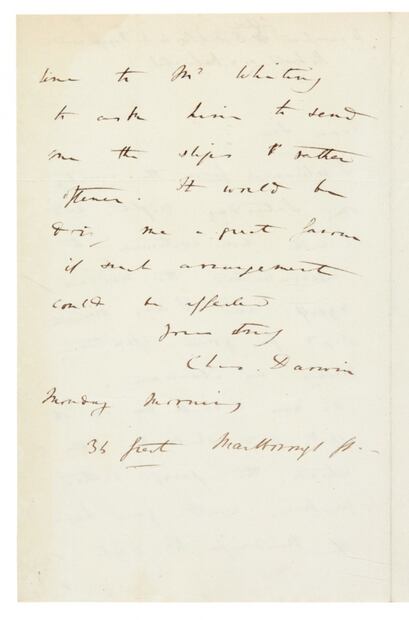 line to Mr Whiting
to ask him to send
me the slips & rather
oftener. It would be
doing me a great favour
if such arrangement
could be effected
Yours truly
Chas. Darwin
Monday Morning
36 Great Marlborough St.